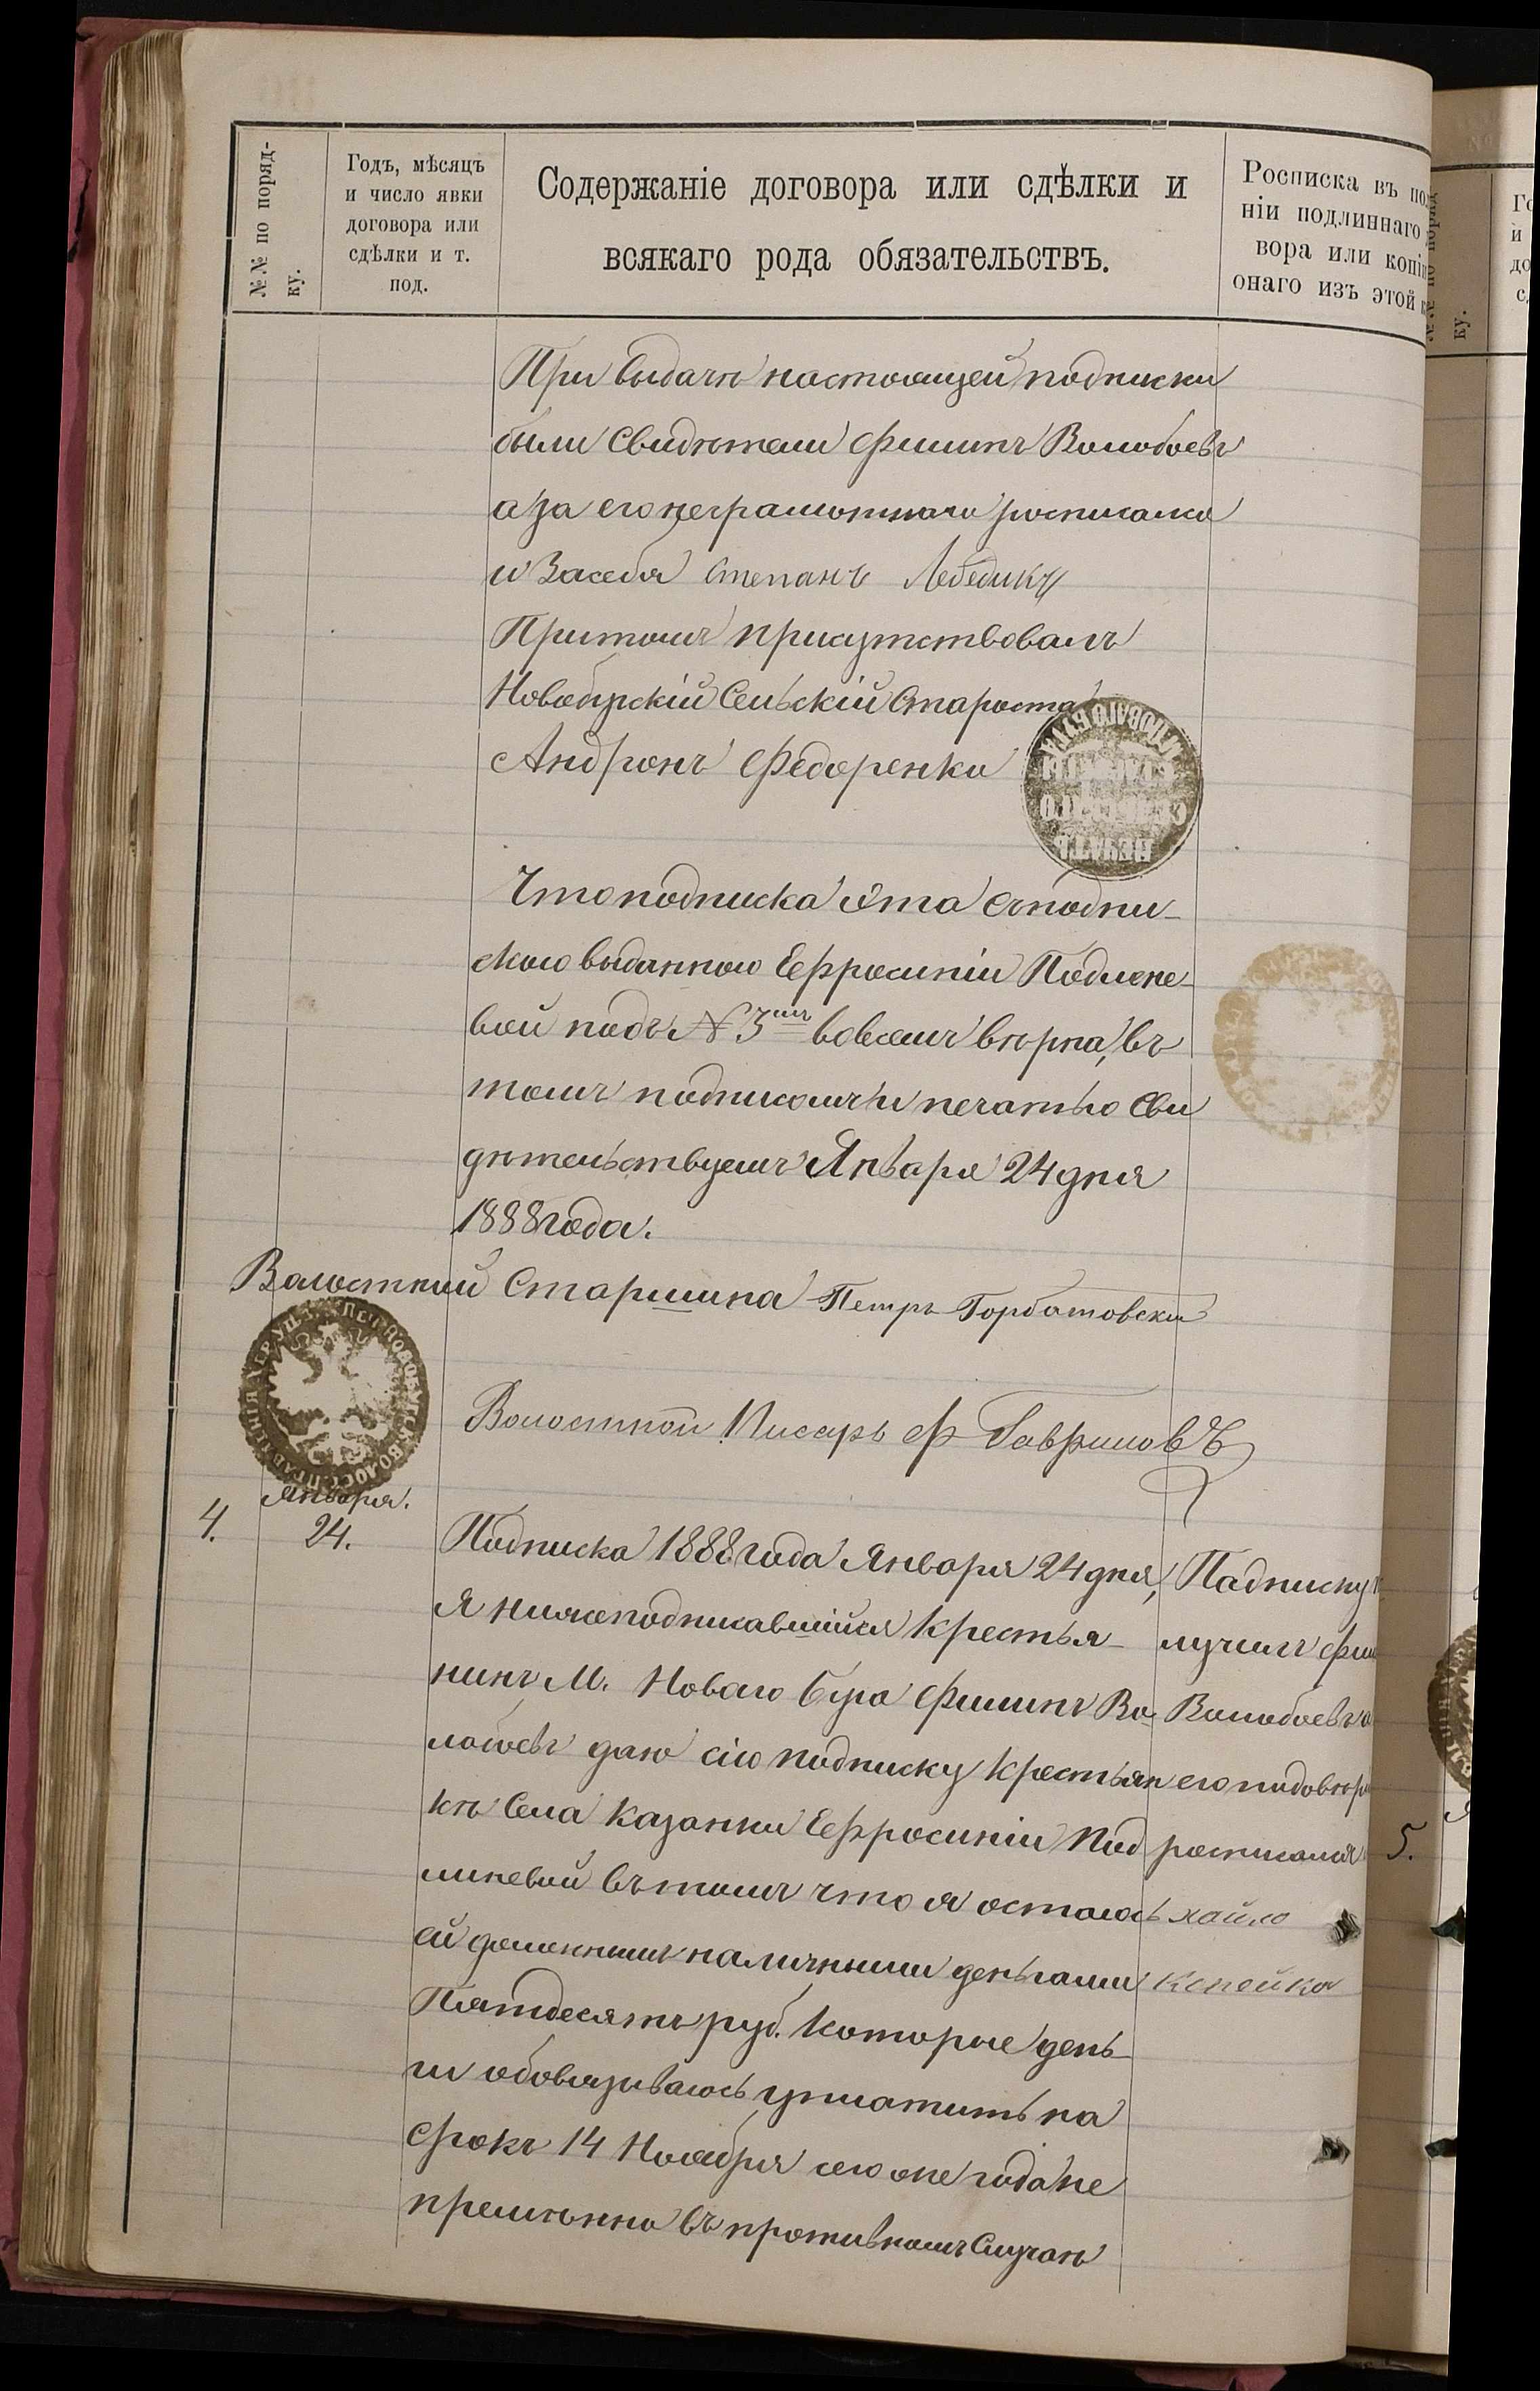 №№ по поряд-
ку.
Годъ, мѣсяцъ
и число явки
договора или
сдѣлки и т.
под.
Содержаніе договора или сдѣлки и
всякаго рода обязательствъ.
Росписка въ пол
ніи подлиннаго
вора или копіи
онаго изъ этой к
При выдачѣ настоящей подписки
были свидѣтели Филипъ Волобоевъ
а за его неграмотнаго росписался
и За себя Степанъ Лебедикъ
Притомъ присутствовалъ
Новобугскій Сельскій Староста
Андронъ Федоренко
Что подписка эта съ подпи-
скою выданною Ефросиніи Подлине-
вой подъ № 3мъ вовсемъ вѣрна, въ
томъ подписомъ и печатью сви
дѣтельствуемъ Января 24 дня
1888 года.
Волостной Старшина Петръ Горбатовски
Волостной Писарь Ф Гавриловъ
4.
Января.
24.
Подписка 1888 года Января 24 дня,
Я нижеподписавшійся крестья-
нинъ М. Новаго Буга Филипъ Во-
лобоевъ даю сію подписку крестьян
кѣ Села Казанки Ефросиніи Под
линевой въ томъ что я остаюсь
ей долженнымъ наличными деньгами
Пятдесятъ руб. которые день-
ги обовязываюсь уплатить на
срокъ 14 Ноября сего же года не
премѣнно въ противномъ случаѣ
Падписку п
лучилъ Фил
Волобоевъ а
его подовѣр
росписался
хайло
Копейка
5.